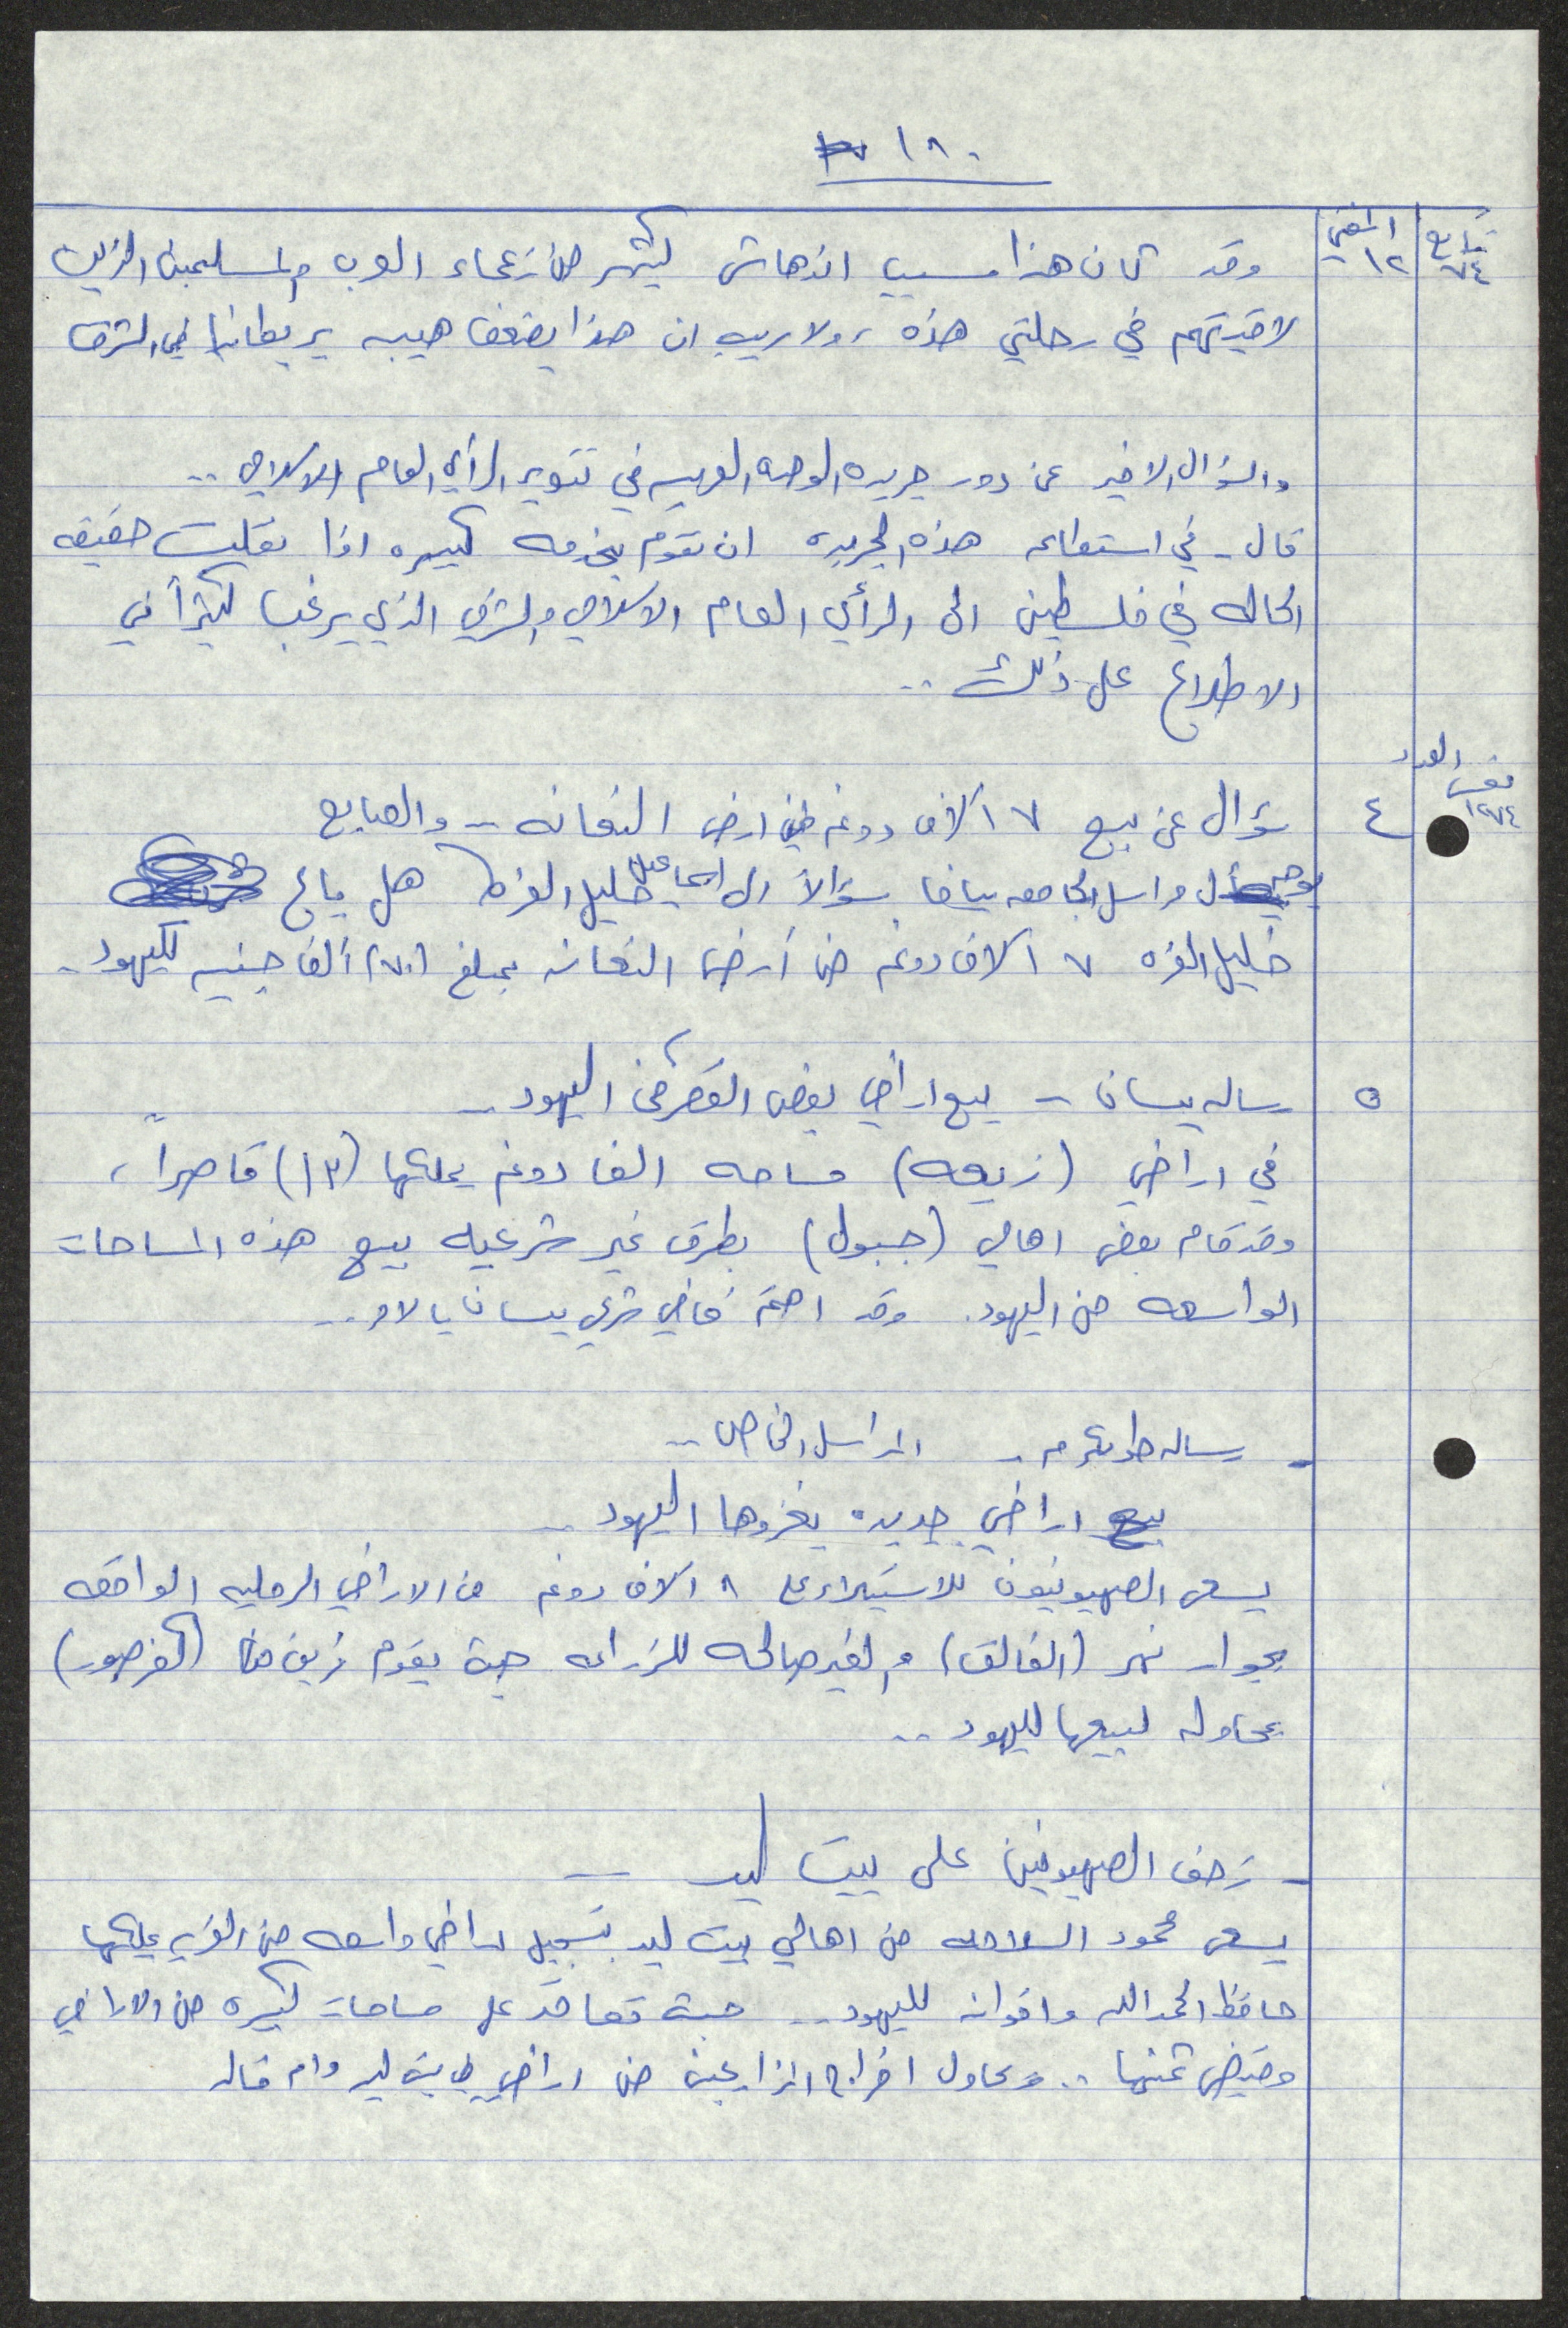 ١٨٠
تابع
٧٤
المفتي
١٢
وقد كان هذا سبب اندهاش كثير من زعماء العرب والمسلمين الذين
لاقيتهم في رحلتي هذه، ولاريب ان هذا يضعف هيبه بريطانيا في الشرق
والسؤال الاخير عن دور جريده الوحده العربيه في تنوير الرأي العام الاسلامي ..
قال - في استطاعه هذه الجريده ان تقوم بخدمه كبيره اذا نقلت حقيقه
الحاله في فلسطين الى الرأي العام الاسلامي والشرقي الذي يرغب كثيراً في
الاطلاع على ذلك ..
نفس العدد
١٢٧٤
٤
سؤال عن بيع ٧ آلاف دونم في ارض النعانه - والصايع
يوجه مراسل الجامعه بيافا سؤالاً الى اسماعيل خليل الغزه هل باع
خليل الغزه ٧ آلاف دونم من أرض النعانه بمبلغ (٧٠) ألف جنيه لليهود ..
٥
رساله بيسان - بيع اراضي بعض القصر من اليهود ..
في اراضي (زبعه) مساحه الفا دونم يملكها (١٣) قاصراً،
وقد قام بعض اهالي (جبول) بطرق غير شرعيه ببيع هذه المساحات
الواسعه من اليهود. وقد اهتم قاضي شرعي بيسان بالامر ..
- رساله طولكرم - المراسل الخاص ..
اراضي جديده يغزوها اليهود ..
يسعى الصهيونيون للاستيلاء على ٨ آلاف دونم من الاراضي الرمليه الواقعه
بجوار نهر (الفالق) والغير صالحه للزراعه حيث يقوم فريق من (كفرصور)
بمحاوله لبيعها لليهود ..
- زحف الصهيونيين على بيت ليد -
يسعى محمود السلامه من اهالي بيت ليد بتسجيل اراضي واسعه من القريه يملكها
حافظ الحمدالله واخوانه لليهود .. حيث تعاقد على مساحات كبيره من الاراضي
وقبض ثمنها .. ويحاول اخراج المزارعين من اراضي في بيت ليد وام خالد